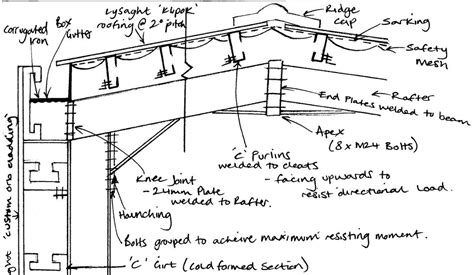 Lysaght 'Klipok'
roofing @ 2° pitch
Ridge
Cap
Sarking
Safety
mesh
Corrugated
Iron
Box
Gutter
Rafter
End Plates welded to beam
Apex
(8 x M24 Bolts)
'C' Purlins
welded to cleats
- facing upwards to
resist directional load.
Knee Joint
- 24mm Plate
welded to Rafter.
Haunching
Bolts grouped to achieve maximum resisting moment.
'C' Girt (cold formed Section)
'custom orb cladding'